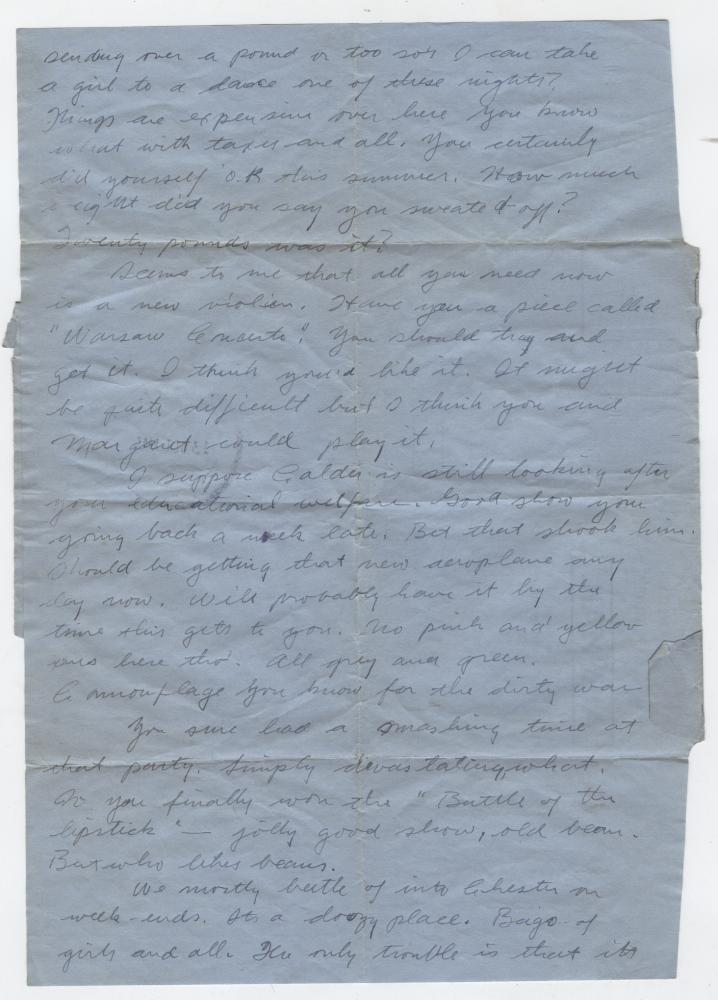 sending over a pound or too so's I can take
a girl to a dance one of these nights?
Things are expensive over here you know
what with taxes and all. You certainly
did yourself O.K this summer. How much
weight did you say you sweated off?
Twenty pounds was it?
Seems to me that all you need now
is a new violin. Have you a piece called
"Warsaw Concerto". You should try and
get it. I think you'd like it. It might
be quite difficult but I think you and
Margaret could play it.
I suppose Calder is still looking after
your educational welfare. Good show your
going back a week late. Bet that shook him.
Should be getting that new aeroplane any
day now. Will probably have it by the
time this gets to you. No pink and yellow
ones here tho'. All grey and green.
Cammouflage you know for the dirty war
You sure had a smashing time at
that party. Simply devastating, what.
So you finally won the "Battle of the
lipstick" — jolly good show, old bean.
But who likes beans.
We mostly beetle of into Chester on
week-ends. Its a doozy place. Bags of
girls and all. The only trouble is that its